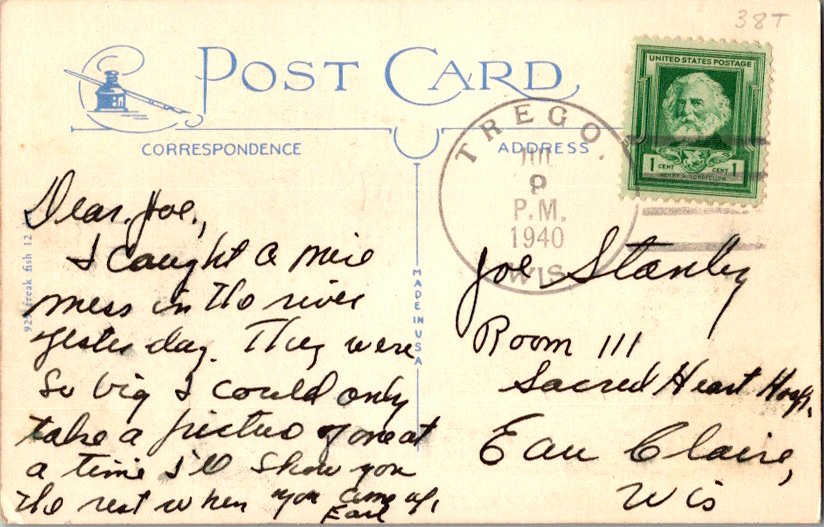 38T
POST CARD
UNITED STATES POSTAGE
1 CENT CENT 1
HENRY W. LONGFELLOW
CORRESPONDENCE
ADDRESS
TREGO.
JUL
9
P.M.
1940
WIS.
Dear Joe,
I caught a nice
mess in the river
yesterday. They were
so big I could only
take a pictue of one at
a time I'll show you
the rest when you come up,
Earl
Joe Stanley
Room 111
Sacred Heart Hosp,
Eau Claire,
Wis
MADE IN USA
freak fish 12